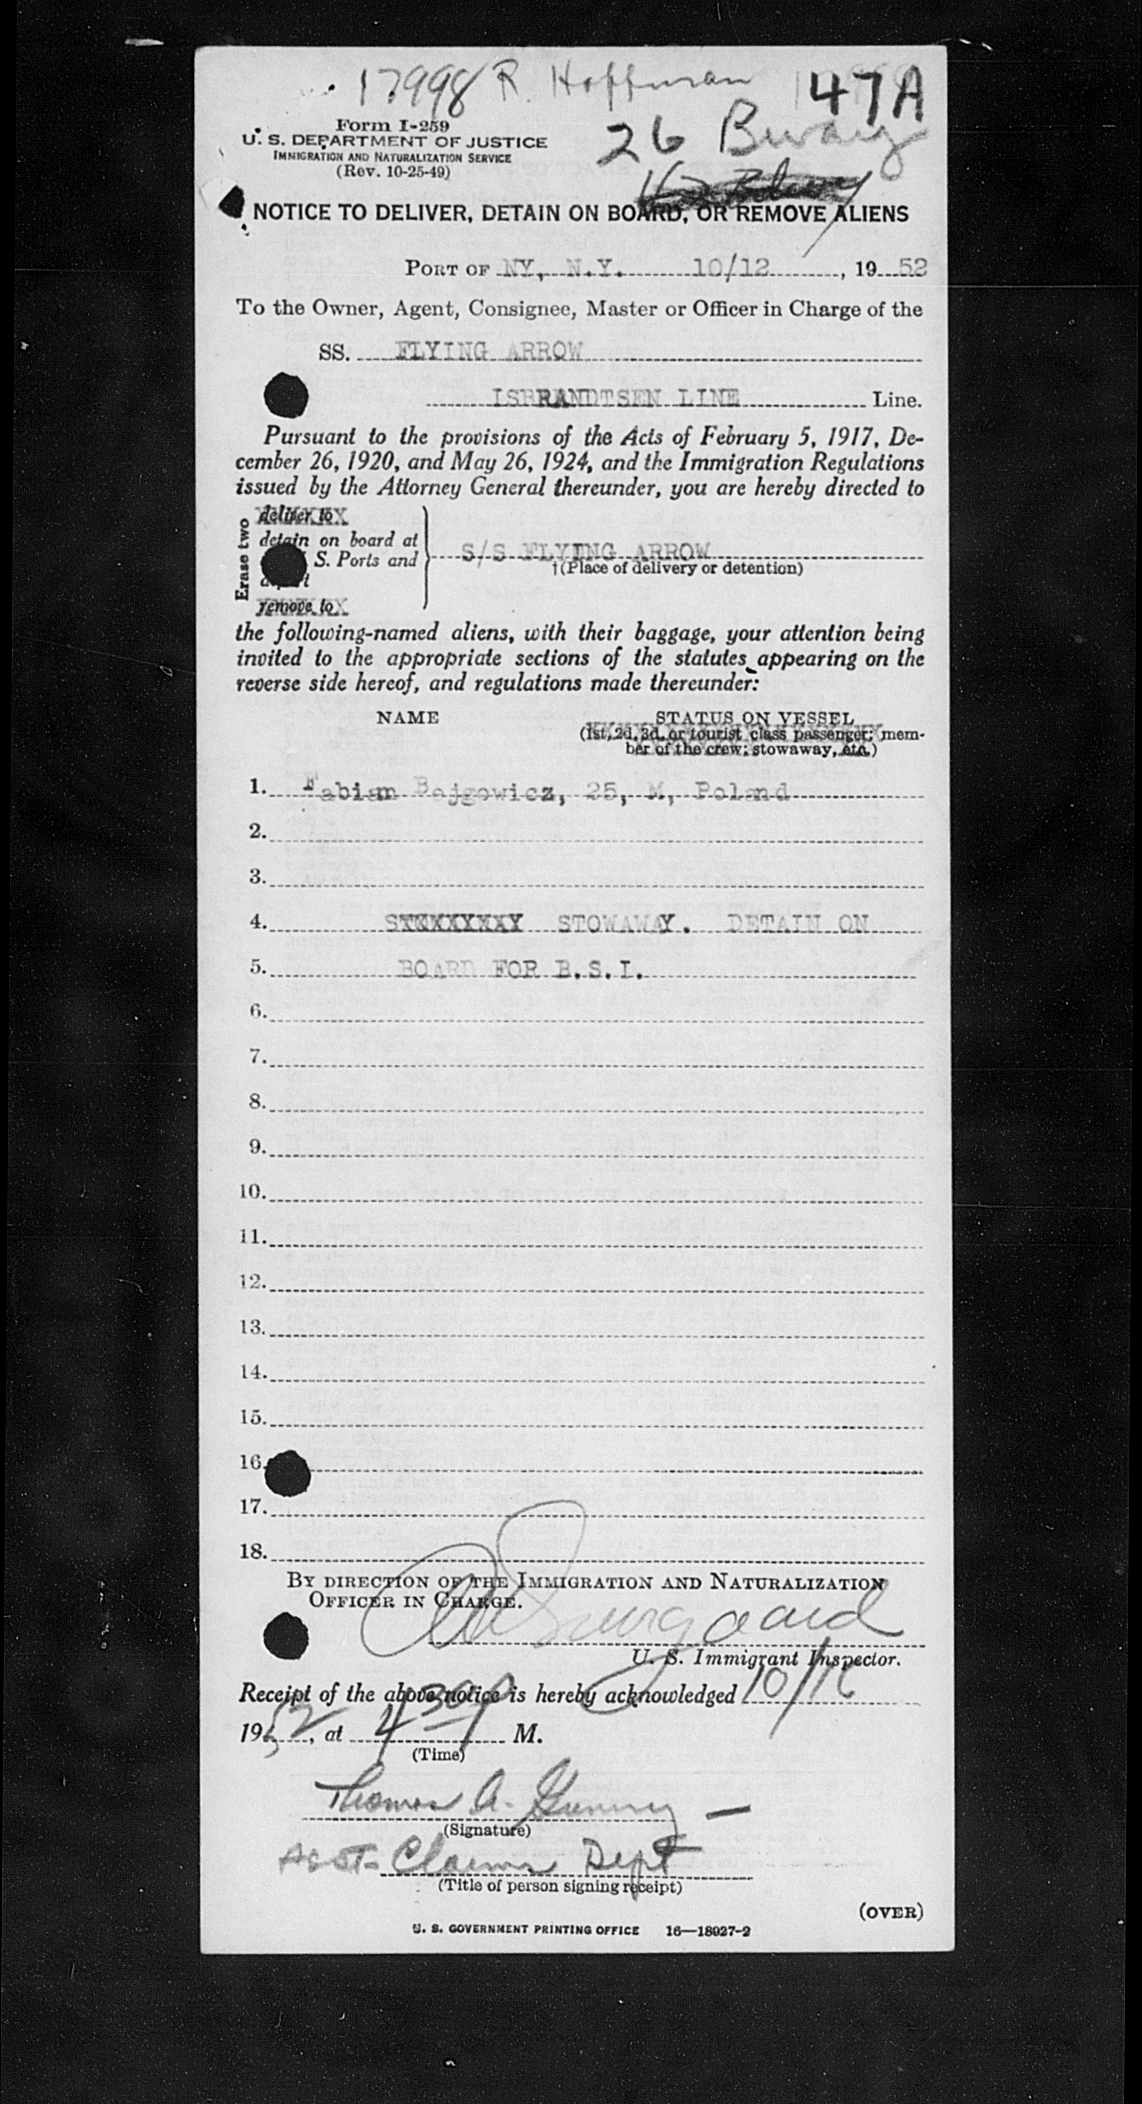 17998 R. Hoffman 47A
Form I-259
U. S. DEPARTMENT OF JUSTICE
26 Bway
IMMIGRATION AND NATURALIZATION SERVICE
(Rev. 10-25-49)
NOTICE TO DELIVER, DETAIN ON BOARD, OR REMOVE ALIENS
PORT OF NY, N.Y. 10/12, 1952
To the Owner, Agent, Consignee, Master or Officer in Charge of the
SS. FLYING ARROW
ISBRANDTSEN LINE Line.
Pursuant to the provisions of the Acts of February 5, 1917, De-
cember 26, 1920, and May 26, 1924, and the Immigration Regulations
issued by the Attorney General thereunder, you are hereby directed to
Erase two
deliver to
detain on board at
S. Ports and
S/S FLYING ARROW
†(Place of delivery or detention)
remove to
the following-named aliens, with their baggage, your attention being
invited to the appropriate sections of the statutes appearing on the
reverse side hereof, and regulations made thereunder:
NAME STATUS ON VESSEL
(1st, 2d, 3d, or tourist class passenger; mem-
ber of the crew; stowaway, etc.)
1. Fabian Bejgowicz, 25, M, Poland
2.
3.
4. STOWAWAY. DETAIN ON
5. BOARD FOR B.S.I.
6.
7.
8.
9.
10.
11.
12.
13.
14.
15.
16.
17.
18.
BY DIRECTION OF THE IMMIGRATION AND NATURALIZATION
OFFICER IN CHARGE.
U. S. Immigrant Inspector.
Receipt of the above notice is hereby acknowledged
1952, at 430P M.
(Time)
Thomas A.
(Signature)
Asst. Claims Dept
(Title of person signing receipt)
(OVER)
U. S. GOVERNMENT PRINTING OFFICE 16—18927-2